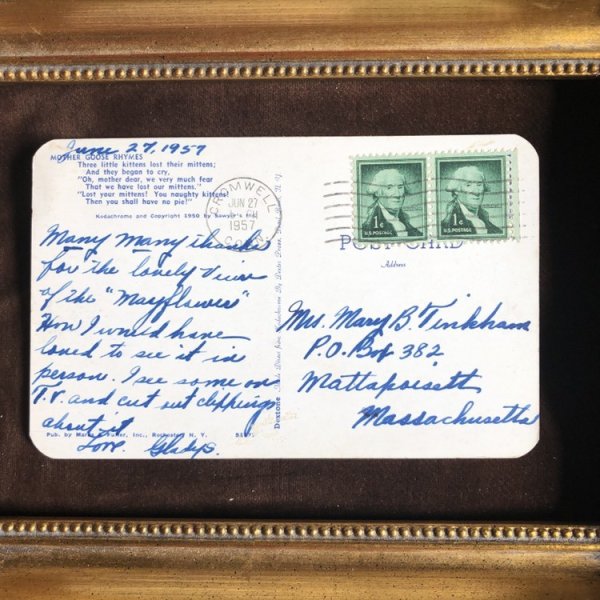 June 27, 1957
MOTHER GOOSE RHYMES
Three little kittens lost their mittens;
And they began to cry,
"Oh, mother dear, we very much fear
That we have lost our mittens."
"Lost your mittens! You naughty kittens!
Then you shall have no pie!"
Kodachrome and Copyright 1950 by Sawyer's Inc.
Many Many thanks
for the lovely View
of the "Mayflower"
How I would have
loved to see it in
person. I see some on
T.V. and cut out clippings
about it
Love Gladys.
Pub. by Inc., N. Y.
Dextone
CROMWELL
JUN 27
1957
CONN.
1¢
U.S. POSTAGE
1¢
U.S. POSTAGE
POST CARD
Address
Mrs. Mary B. Tinkham
P.O. Box 382
Mattapoisett
Massachusetts